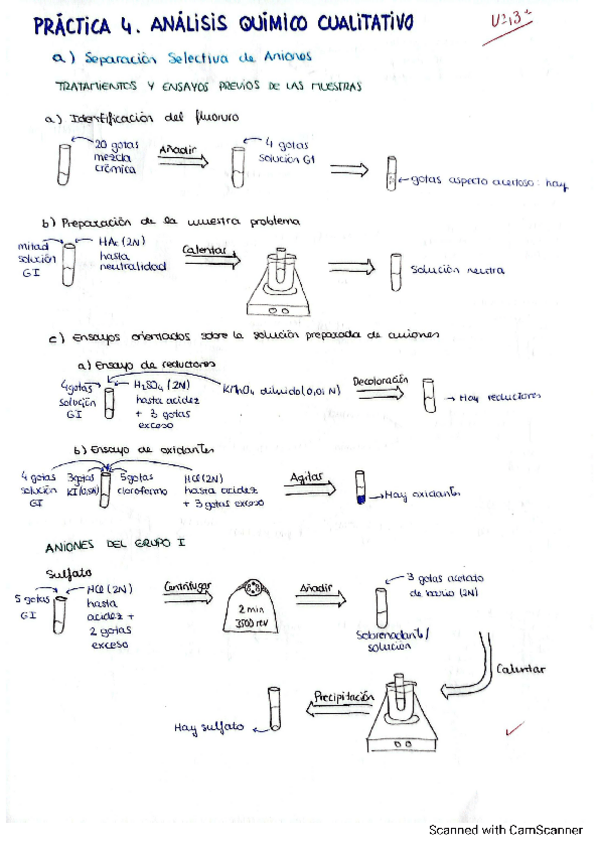 PRÁCTICA 4. ANÁLISIS QUÍMICO CUALITATIVO
a) Separación Selectiva de Aniones
TRATAMIENTOS Y ENSAYOS PREVIOS DE LAS MUESTRAS
a) Identificación del fluoruro
20 gotas
mezcla
crómica
Añadir
4 gotas
solución GI
gotas aspecto aceitoso: hay
b) Preparación de la muestra problema
mitad
solución
GI
HAc (2N)
hasta
neutralidad
Calentar
Solución neutra
c) Ensayos orientados sobre la solución preparada de aniones
a) Ensayo de reductores
4 gotas
solución
GI
H2SO4 (2N)
hasta acidez
+ 3 gotas
exceso
KMnO4 diluido (0,01 N)
Decoloración
Hay reductores
b) Ensayo de oxidantes
4 gotas
solución
GI
3 gotas
5 gotas
cloroformo
HCl (2N)
hasta acidez
+ 3 gotas exceso
Agitas
Hay oxidantes
ANIONES DEL GRUPO I
Sulfato
5 gotas
GI
HCl (2N)
hasta
acidez +
2 gotas
exceso
Centrifugar
2 min
3500 rev
Añadir
3 gotas acetato
de bario (2N)
Sobrenadante/
solución
Calentar
Precipitación
Hay sulfato
Scanned with CamScanner